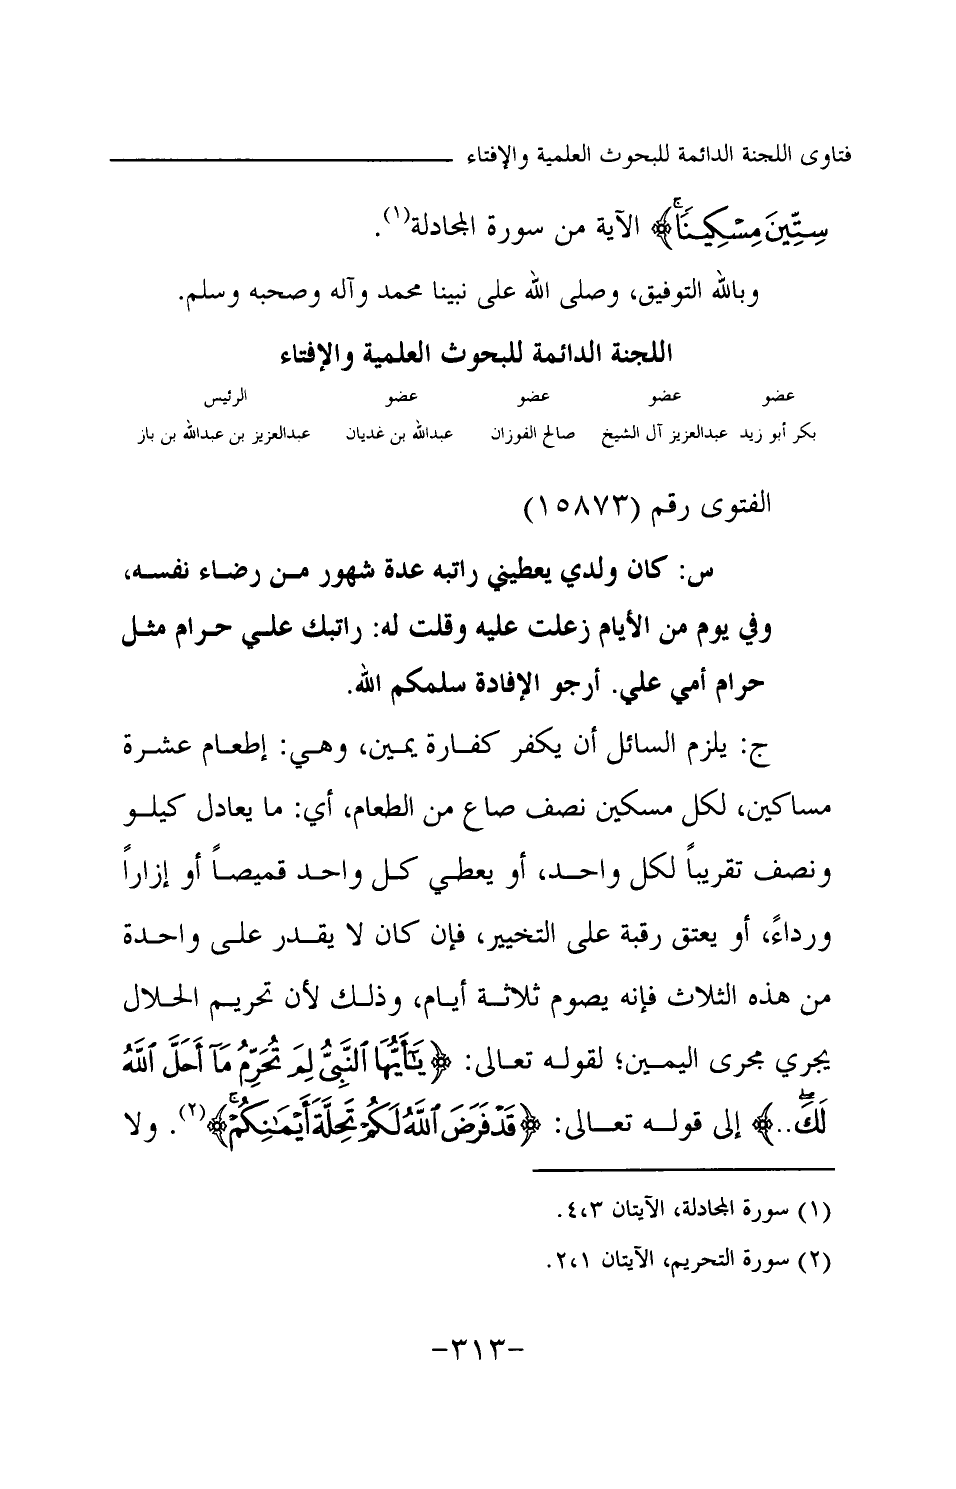 فتاوى اللجنة الدائمة للبحوث العلمية والإفتاء
سِتِّينَ مِسْكِينًا﴾ الآية من سورة المجادلة(١).
وبالله التوفيق، وصلى الله على نبينا محمد وآله وصحبه وسلم.
اللجنة الدائمة للبحوث العلمية والإفتاء
عضو عضو عضو عضو الرئيس
بكر أبو زيد عبدالعزيز آل الشيخ صالح الفوزان عبدالله بن غديان عبدالعزيز بن عبدالله بن باز
الفتوى رقم (١٥٨٧٣)
س: كان ولدي يعطيني راتبه عدة شهور من رضاء نفسه،
وفي يوم من الأيام زعلت عليه وقلت له: راتبك علي حرام مثل
حرام أمي علي. أرجو الإفادة سلمكم الله.
ج: يلزم السائل أن يكفر كفارة يمين، وهي: إطعام عشرة
مساكين، لكل مسكين نصف صاع من الطعام، أي: ما يعادل كيلو
ونصف تقريباً لكل واحد، أو يعطي كل واحد قميصاً أو إزاراً
ورداءً، أو يعتق رقبة على التخيير، فإن كان لا يقدر على واحدة
من هذه الثلاث فإنه يصوم ثلاثة أيام، وذلك لأن تحريم الحلال
يجري مجرى اليمين؛ لقوله تعالى: ﴿يَٰٓأَيُّهَا ٱلنَّبِيُّ لِمَ تُحَرِّمُ مَآ أَحَلَّ ٱللَّهُ
لَكَۖ..﴾ إلى قوله تعالى: ﴿قَدْ فَرَضَ ٱللَّهُ لَكُمْ تَحِلَّةَ أَيْمَٰنِكُمْۚ﴾(٢). ولا
(١) سورة المجادلة، الآيتان ٣،٤.
(٢) سورة التحريم، الآيتان ١،٢.
-٣١٣-